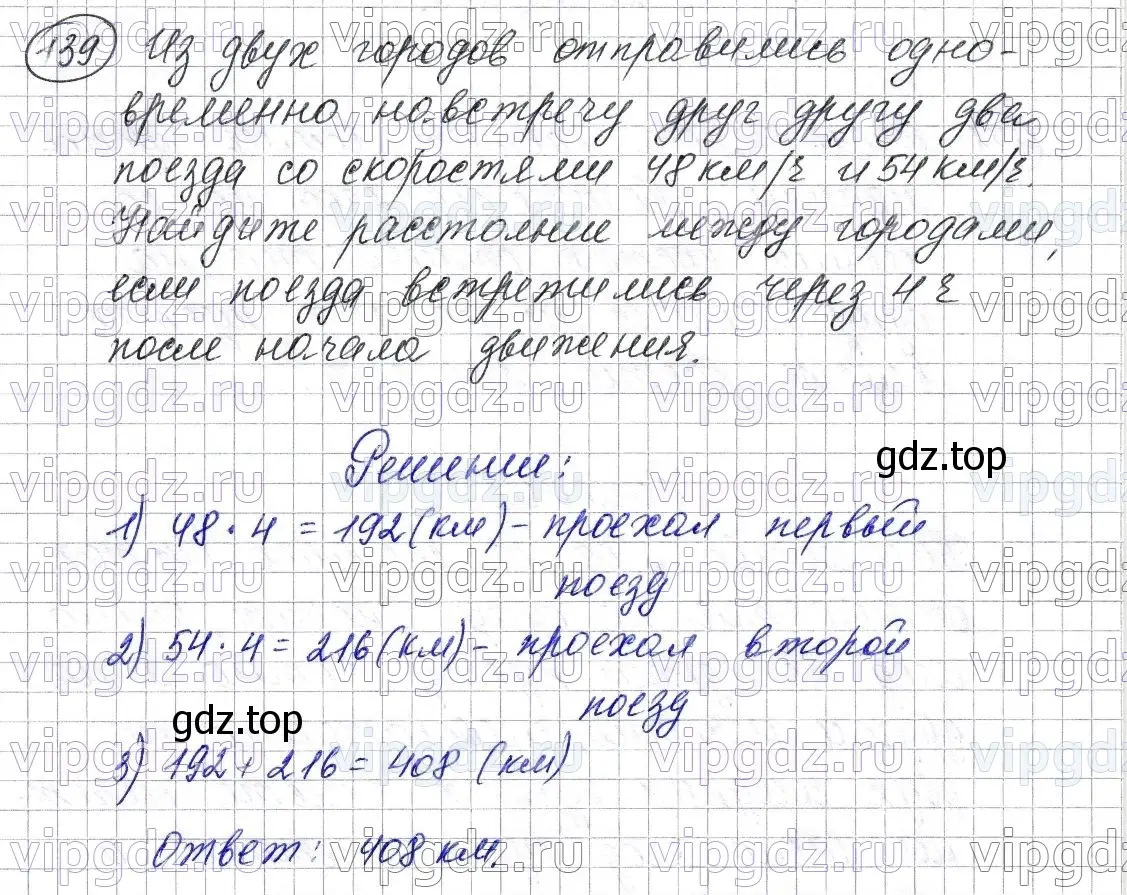 139 Из двух городов отправились одно-
временно навстречу друг другу два
поезда со скоростями 48 км/ч и 54 км/ч.
Найдите расстояние между городами,
если поезда встретились через 4 ч
после начала движения.
Решение:
gdz.top
1) 48 · 4 = 192 (км) - проехал первый
поезд
2) 54 · 4 = 216 (км) - проехал второй
поезд
gdz.top
3) 192 + 216 = 408 (км)
Ответ: 408 км.
vipgdz.ru